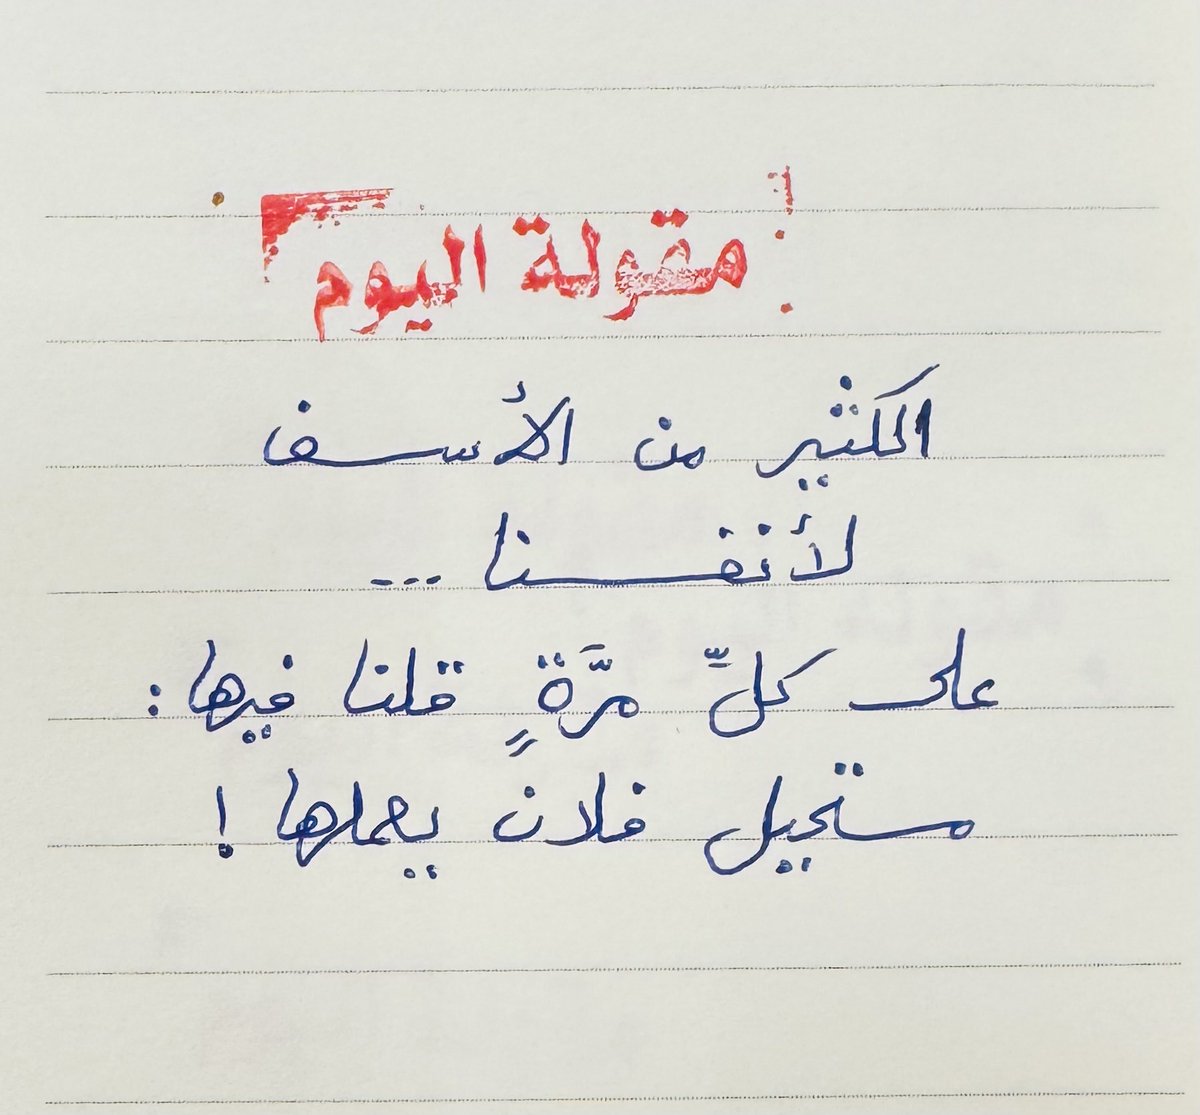 مقولة اليوم
الكثير من الأسف
لأنفسنا ...
على كلِّ مرَّةٍ قلنا فيها :
مستحيل فلان يعملها !